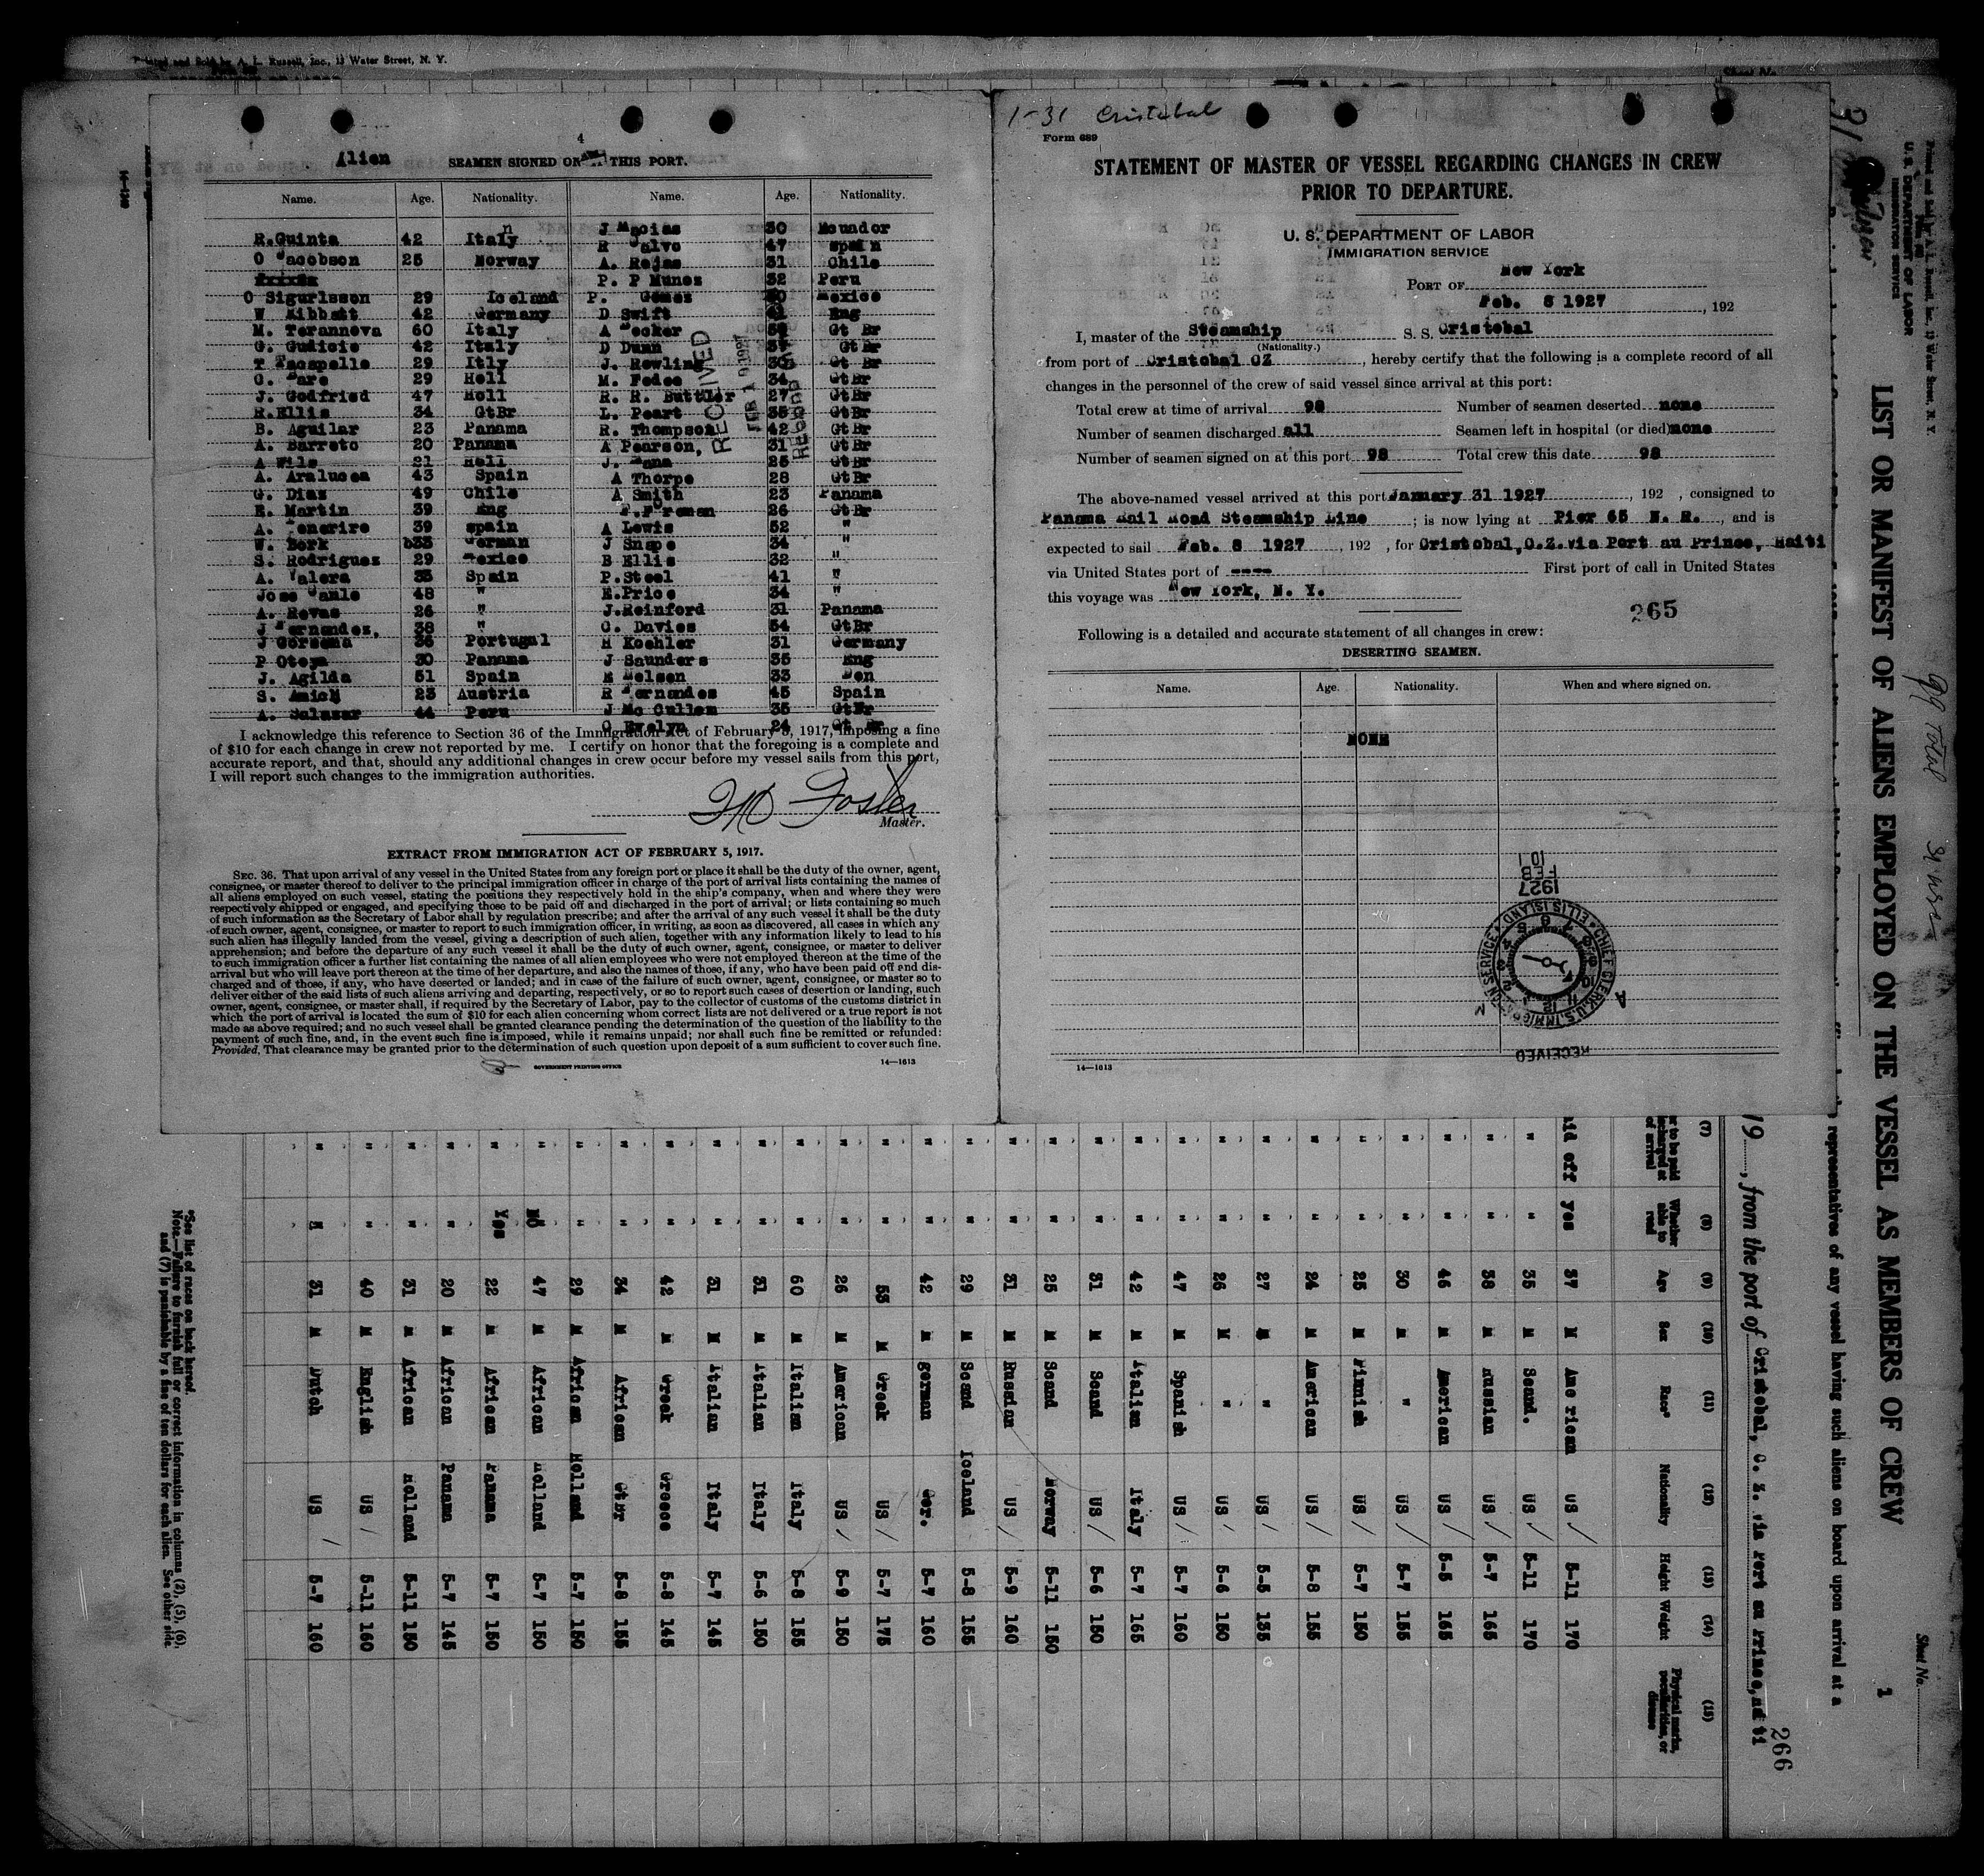 Printed and Sold by A. L. Russell, Inc., 13 Water Street, N. Y.
4
Alien SEAMEN SIGNED ON THIS PORT.
Name. Age. Nationality. Name. Age. Nationality.
R. Guinta 42 Italy
O Jacobson 25 Norway
O Sigurlsson 29 Iceland
W Kibbatt 42 Germany
M. Terannova 60 Italy
G. Gudicio 42 Italy
29 Itly
29 Holl
J. Godfried 47 Holl
R. Ellis 34 GtBr
B. Aguilar 23 Panama
A. Barreto 20 Panama
A Wils 21 Holl
A. Aralucea 43 Spain
G. Diaz 49 Chile
E. Martin 39 Eng
A. Tenerire 39 spain
W. Bork 33 German
S. Rodriguez 29 Mexico
A. Valera 35 Spain
Jose 48 "
A. Revas 26 "
J Fernandez, 38 "
J Gorsoma 36 Portugul
P Oteya 30 Panama
J. Agilda 51 Spain
S. Amich 23 Austria
A. Salazar 44 Peru
J Macias 30 Ecuador
R Calvo 47 spain
A. Rejas 31 Chile
P. P Munes 32 Peru
P. Gomez Mexico
D Swift Eng
A Becker Gt Br
D Dunn Gt Br
J. Rowling Gt Br
M. Fedee 34 GtBr
R. R. Buttler 27 GtBr
L. Peart 35 GtBr
R. Thompson 42 GtBr
A Pearson, 31 GtBr
J. 25 GtBr
A Thorpe 28 GtBr
A Smith 23 Panama
26 GtBr
A Lewis 52 "
J Snape 34 "
B Ellis 32 "
P. Steel 41 "
E. Price 34 "
J. Reinford 31 Panama
C. Davies 54 GtBr
H Koehler 31 Germany
J Saunders 35 Eng
E Nelson 33 Den
R Fernandes 45 Spain
J Mc Cullem 35 GtBr
O Evelyn 24 Gt Br
RECEIVED
FEB 10 1927
I acknowledge this reference to Section 36 of the Immigration Act of February 5, 1917, imposing a fine
of $10 for each change in crew not reported by me. I certify on honor that the foregoing is a complete and
accurate report, and that, should any additional changes in crew occur before my vessel sails from this port,
I will report such changes to the immigration authorities.
Foster
Master.
EXTRACT FROM IMMIGRATION ACT OF FEBRUARY 5, 1917.
SEC. 36. That upon arrival of any vessel in the United States from any foreign port or place it shall be the duty of the owner, agent,
consignee, or master thereof to deliver to the principal immigration officer in charge of the port of arrival lists containing the names of
all aliens employed on such vessel, stating the positions they respectively hold in the ship's company, when and where they were
respectively shipped or engaged, and specifying those to be paid off and discharged in the port of arrival; or lists containing so much
of such information as the Secretary of Labor shall by regulation prescribe; and after the arrival of any such vessel it shall be the duty
of such owner, agent, consignee, or master to report to such immigration officer, in writing, as soon as discovered, all cases in which any
such alien has illegally landed from the vessel, giving a description of such alien, together with any information likely to lead to his
apprehension; and before the departure of any such vessel it shall be the duty of such owner, agent, consignee, or master to deliver
to such immigration officer a further list containing the names of all alien employees who were not employed thereon at the time of the
arrival but who will leave port thereon at the time of her departure, and also the names of those, if any, who have been paid off and dis-
charged and of those, if any, who have deserted or landed; and in case of the failure of such owner, agent, consignee, or master so to
deliver either of the said lists of such aliens arriving and departing, respectively, or so to report such cases of desertion or landing, such
owner, agent, consignee, or master shall, if required by the Secretary of Labor, pay to the collector of customs of the customs district in
which the port of arrival is located the sum of $10 for each alien concerning whom correct lists are not delivered or a true report is not
made as above required; and no such vessel shall be granted clearance pending the determination of the question of the liability to the
payment of such fine, and, in the event such fine is imposed, while it remains unpaid; nor shall such fine be remitted or refunded:
Provided, That clearance may be granted prior to the determination of such question upon deposit of a sum sufficient to cover such fine.
GOVERNMENT PRINTING OFFICE
14—1613
1-31 Cristobal
Form 689
STATEMENT OF MASTER OF VESSEL REGARDING CHANGES IN CREW
PRIOR TO DEPARTURE.
U. S. DEPARTMENT OF LABOR
IMMIGRATION SERVICE
PORT OF New York
Feb. 8 1927, 192
I, master of the Steamship S. S. Cristobal
(Nationality.)
from port of Cristobal CZ, hereby certify that the following is a complete record of all
changes in the personnel of the crew of said vessel since arrival at this port:
Total crew at time of arrival 98 Number of seamen deserted none
Number of seamen discharged all Seamen left in hospital (or died) none
Number of seamen signed on at this port 98 Total crew this date 98
The above-named vessel arrived at this port January 31 1927, 192 , consigned to
Panama Rail Road Steamship Line ; is now lying at Pier 65 N. R., and is
expected to sail Feb. 8 1927, 192 , for Cristobal, C.Z. via Port au Prince, Haiti
via United States port of ---- First port of call in United States
this voyage was New York, N. Y.
265
Following is a detailed and accurate statement of all changes in crew:
DESERTING SEAMEN.
Name. Age. Nationality. When and where signed on.
NONE
1927
FEB
10
U.S. IMMIGRATION SERVICE ELLIS ISLAND CHIEF CLERK
RECEIVED
14—1613
Sheet No.
U. S. DEPARTMENT OF LABOR
IMMIGRATION SERVICE
LIST OR MANIFEST OF ALIENS EMPLOYED ON THE VESSEL AS MEMBERS OF CREW 1
representatives of any vessel having such aliens on board upon arrival at a
19 , from the port of Cristobal, C. Z. via Port au Prince,
266
(7) (8) (9) (10) (11) (12) (13) (14) (15)
Whether able to read Age Sex Race* Nationality Height Weight Physical marks, peculiarities, or disease
off yes 37 M American US 5-11 170
" " 35 M Scand. US 5-11 170
" " 38 M Russian US 5-7 165
" " 46 M American US 5-5 165
" " 30 M " US 5-7 155
" " 25 M Finnish US 5-7 150
" " 24 M American US 5-8 155
" " 27 M " US 5-5 135
" " 26 M " US 5-6 150
" " 47 M Spanish US 5-7 160
" " 42 M Italian Italy 5-7 165
" " 31 M Scand US 5-6 150
" " 25 M Scand Norway 5-11 150
" " 31 M Russian US 5-9 160
" " 29 M Scand Iceland 5-8 155
" " 42 M german Ger. 5-7 160
" " 53 M Greek US 5-7 175
" " 26 M American US 5-9 150
" " 60 M Italian Italy 5-8 155
" " 31 M Italian Italy 5-6 150
" " 31 M Italian Italy 5-7 145
" " 42 M Greek Greece 5-8 145
" " 34 M African GtBr 5-8 155
" " 29 M African Holland 5-7 150
" No 47 M African Holland 5-7 150
" Yes 22 M African Panama 5-7 150
" " 20 M African Panama 5-7 145
" " 31 M African Holland 5-11 150
" " 40 M English US 5-11 160
" " 31 M Dutch US 5-7 160
*See list of races on back hereof.
Note.—Failure to furnish full or correct information in columns (2), (5), (6),
and (7) is punishable by a fine of ten dollars for each alien. See other side